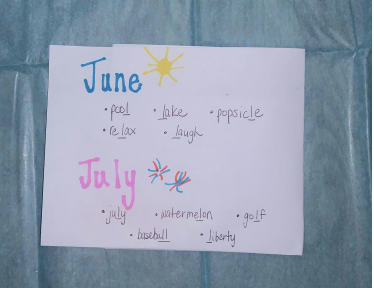 June
• pool • lake • popsicle
• relax • laugh
July
• july • watermelon • golf
• baseball • liberty